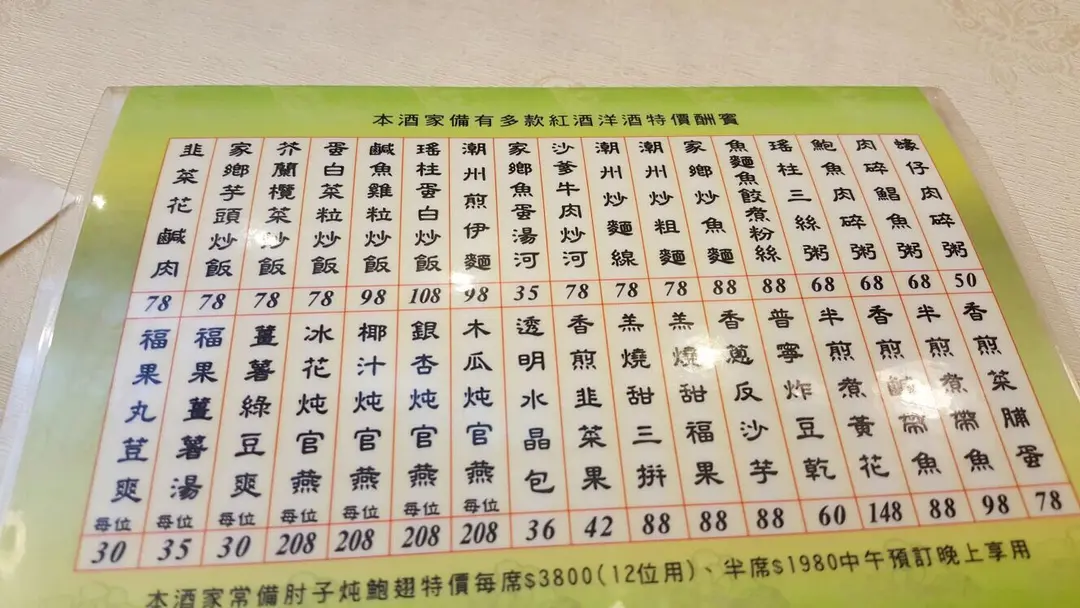 本酒家備有多款紅酒洋酒特價酬賓
蠔仔肉碎粥
50
肉碎鯧魚粥
68
鮑魚肉碎粥
68
瑤柱三絲粥
68
魚麵魚餃煮粉絲
88
家鄉炒魚麵
88
潮州炒粗麵
78
潮州炒麵線
78
沙爹牛肉炒河
78
家鄉魚蛋湯河
35
潮州煎伊麵
98
瑤柱蛋白炒飯
108
鹹魚雞粒炒飯
98
蛋白菜粒炒飯
78
芥蘭欖菜炒飯
78
家鄉芋頭炒飯
78
韭菜花鹹肉
78
香煎菜脯蛋
78
半煎煮帶魚
98
香煎鹹帶魚
88
半煎煮黃花
148
普寧炸豆乾
60
香蔥反沙芋
88
羔燒甜福果
88
羔燒甜三拚
88
香煎韭菜果
42
透明水晶包
36
木瓜炖官燕
每位
208
銀杏炖官燕
每位
208
椰汁炖官燕
每位
208
冰花炖官燕
每位
208
薑薯綠豆爽
每位
30
福果薑薯湯
每位
35
福果丸荳爽
每位
30
本酒家常備肘子炖鮑翅特價每席$3800(12位用)、半席$1980中午預訂晚上享用